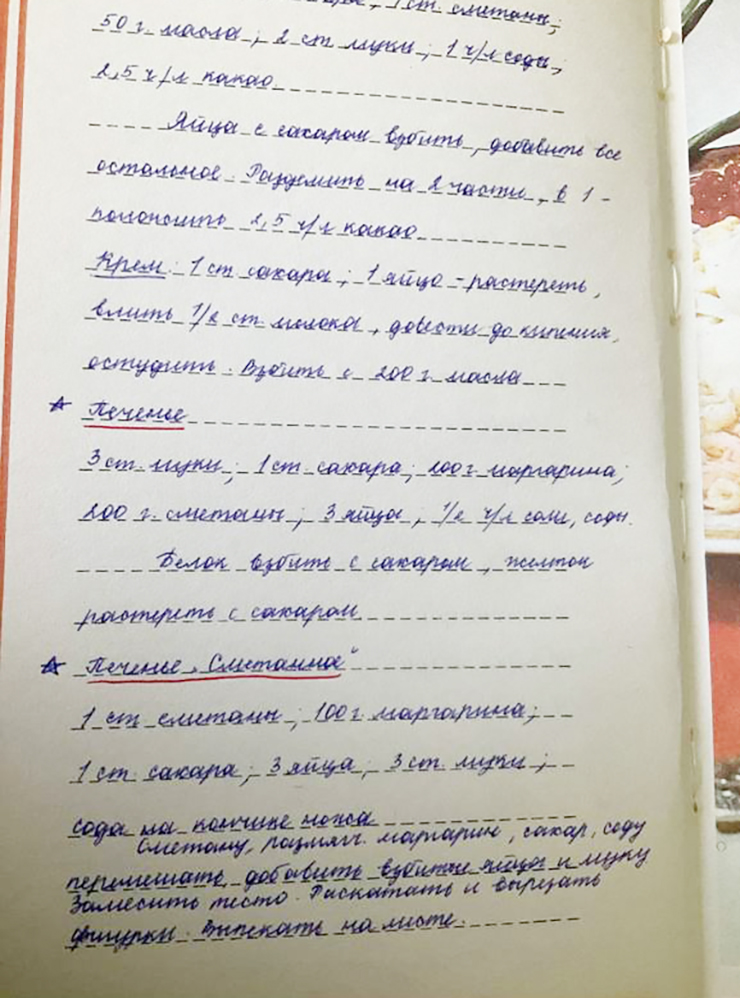 1 ст. сметаны;
50 г. масла; 2 ст. муки; 1 ч/л соды;
2,5 ч/л какао
Яйца с сахаром взбить, добавить все
остальное. Разделить на 2 части, в 1 -
положить 2,5 ч/л какао
Крем: 1 ст. сахара; 1 яйцо - растереть,
влить 1/2 ст. молока, довести до кипения,
остудить. Взбить с 200 г. масла
Печенье
3 ст. муки; 1 ст. сахара; 200 г. маргарина;
200 г. сметаны; 3 яйца; 1/2 ч/л соли, соды.
Белок взбить с сахаром, желток
растереть с сахаром
Печенье „Сметанное"
1 ст. сметаны; 100 г. маргарина;
1 ст. сахара; 3 яйца; 3 ст. муки;
сода на кончике ножа
Сметану, размягч. маргарин, сахар, соду
перемешать, добавить взбитые яйца и муку
Замесить тесто. Раскатать и вырезать
фигурки. Выпекать на листе.